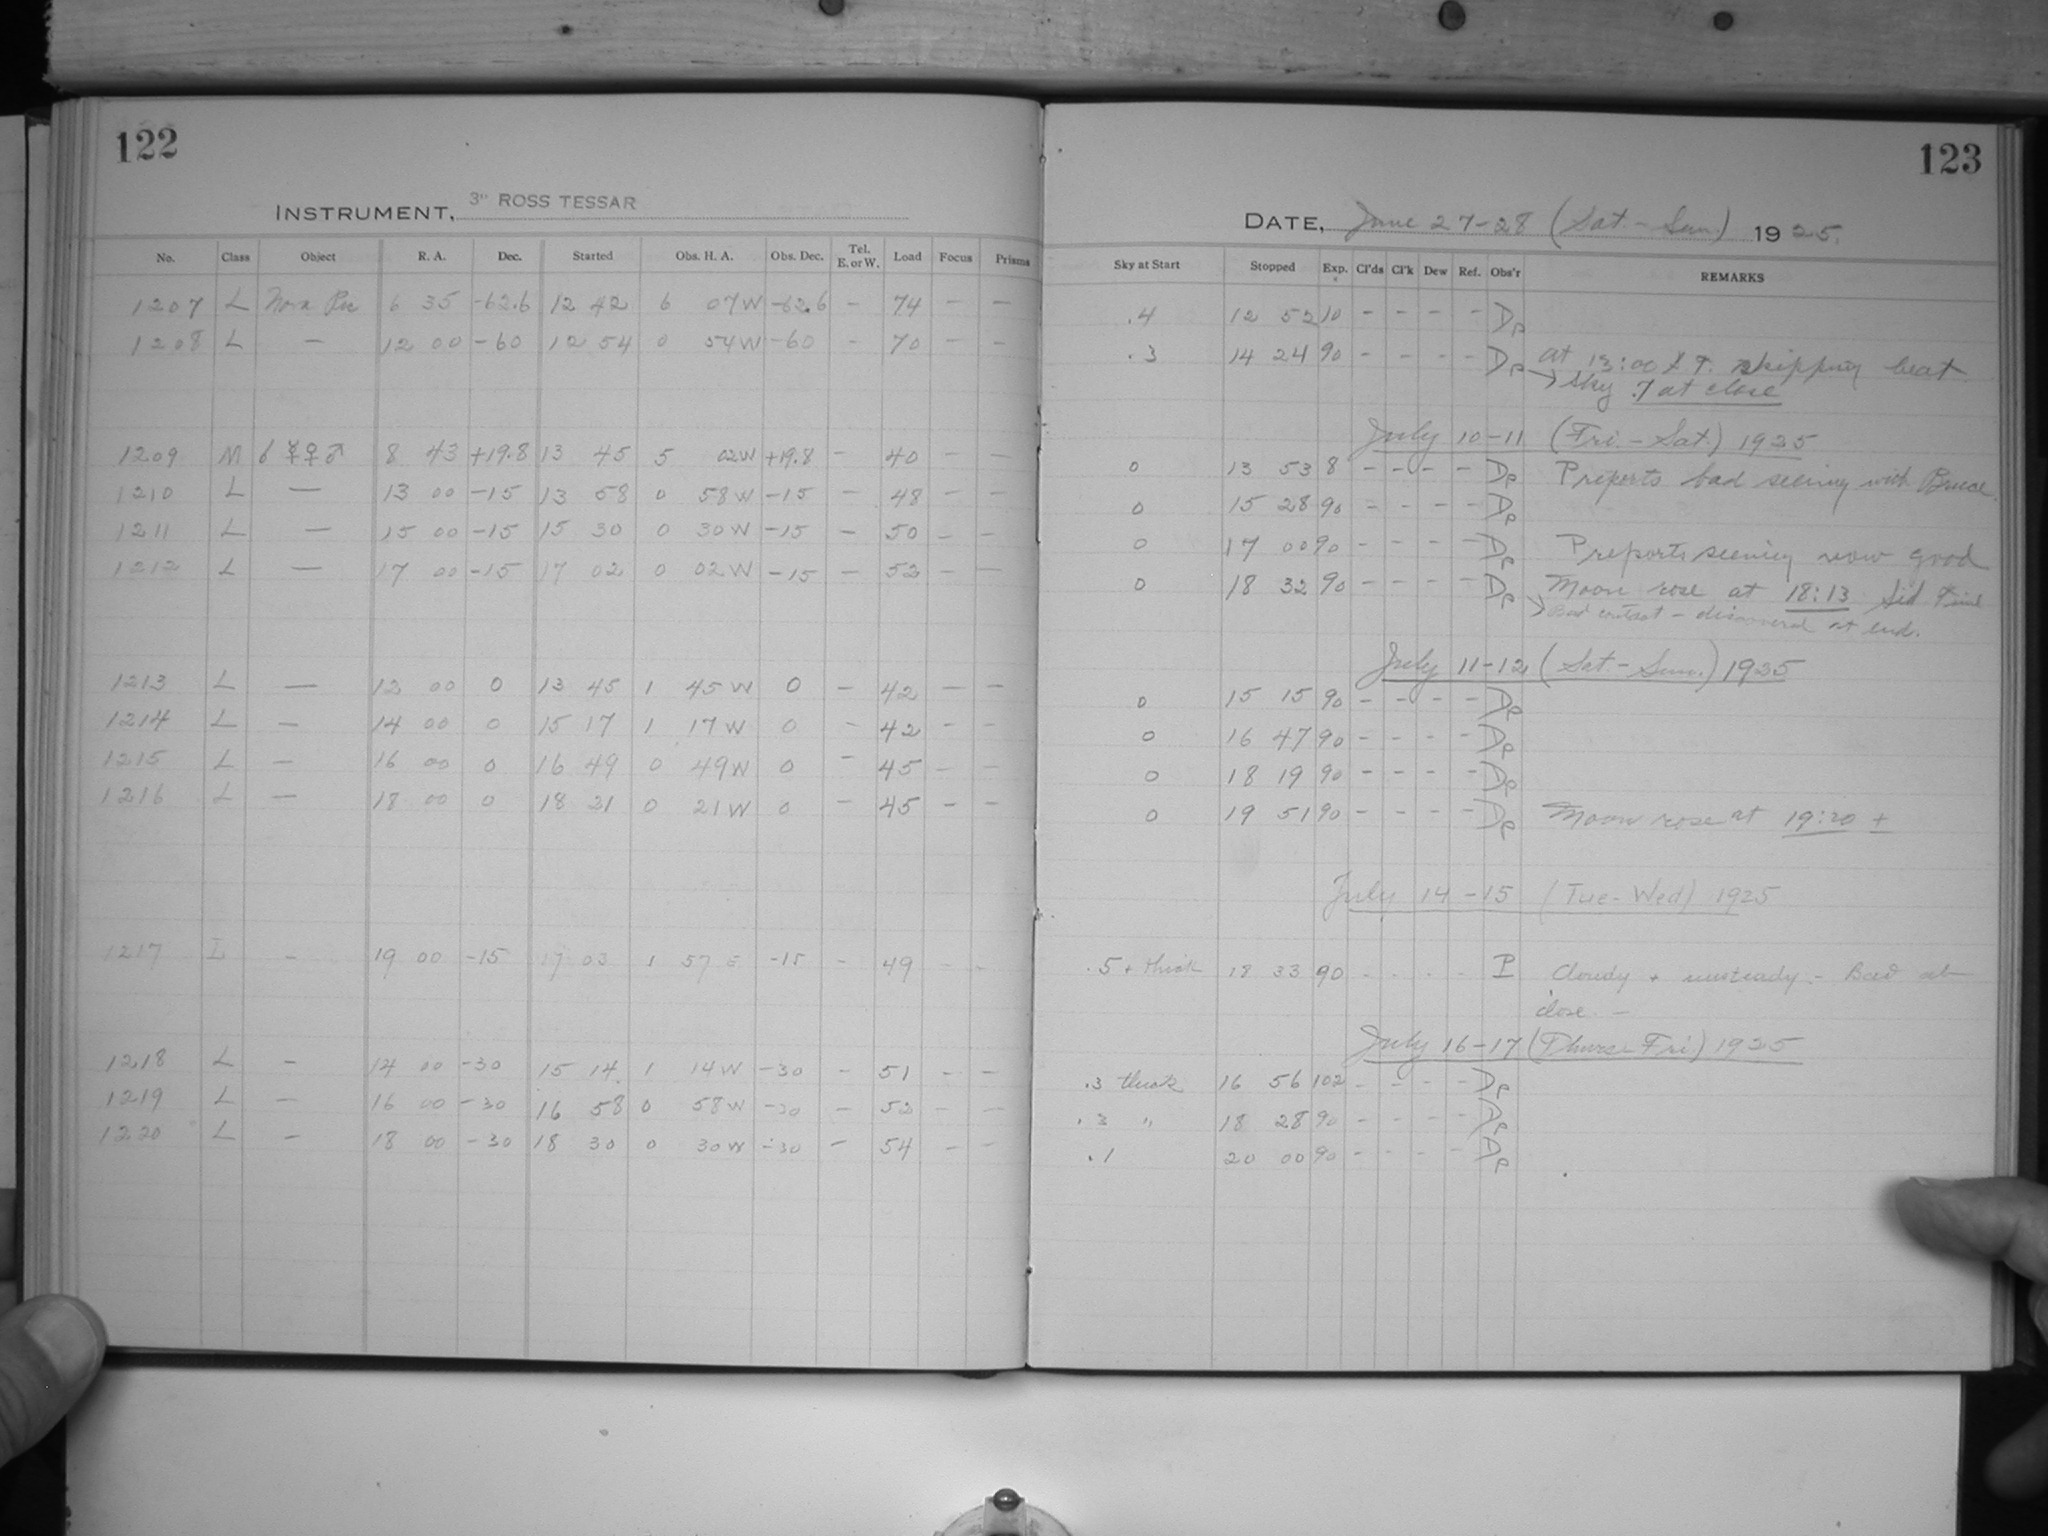 122
INSTRUMENT, 3" ROSS TESSAR
No. Class Object R. A. Dec. Started Obs. H. A. Obs. Dec. Tel. E. or W. Load Focus Prisms
1207 L Nova Pic 6 35 -62.6 12 42 6 07W -62.6 - 74 - -
1208 L - 12 00 -60 12 54 0 54W -60 - 70 - -
1209 M ☌ ☿♀♂ 8 43 +19.8 13 45 5 02W +19.8 - 40 - -
1210 L - 13 00 -15 13 58 0 58W -15 - 48 - -
1211 L - 15 00 -15 15 30 0 30W -15 - 50 - -
1212 L - 17 00 -15 17 02 0 02W -15 - 52 - -
1213 L - 12 00 0 13 45 1 45W 0 - 42 - -
1214 L - 14 00 0 15 17 1 17W 0 - 42 - -
1215 L - 16 00 0 16 49 0 49W 0 - 45 - -
1216 L - 18 00 0 18 21 0 21W 0 - 45 - -
1217 L - 19 00 -15 17 03 1 57 E -15 - 49 - -
1218 L - 14 00 -30 15 14 1 14W -30 - 51 - -
1219 L - 16 00 -30 16 58 0 58W -30 - 52 - -
1220 L - 18 00 -30 18 30 0 30W -30 - 54 - -
123
DATE, June 27-28 (Sat.-Sun.) 1925.
Sky at Start Stopped Exp. Cl'ds Cl'k Dew Ref. Obs'r REMARKS
.4 12 52 10 - - - - Dp
.3 14 24 90 - - - - Dp at 13:00 skipping beat
→ Sky .7 at close
July 10-11 (Fri.-Sat.) 1925
0 13 53 8 - - - - Dp P reports bad seeing with Bruce.
0 15 28 90 - - - - Dp
0 17 00 90 - - - - Dp P reports seeing now good
0 18 32 90 - - - - Dp Moon rose at 18:13 Sid Time
→ Bad contact - discovered at end.
July 11-12 (Sat-Sun.) 1925
0 15 15 90 - - - - Dp
0 16 47 90 - - - - Dp
0 18 19 90 - - - - Dp
0 19 51 90 - - - - Dp Moon rose at 19:20 ±
July 14-15 (Tue-Wed) 1925
.5 + thick 18 33 90 - - - - P Cloudy + unsteady - Bad at
close. -
July 16-17 (Thurs-Fri) 1925
.3 thick 16 56 102 - - - - Dp
.3 " 18 28 90 - - - - Dp
.1 20 00 90 - - - - Dp